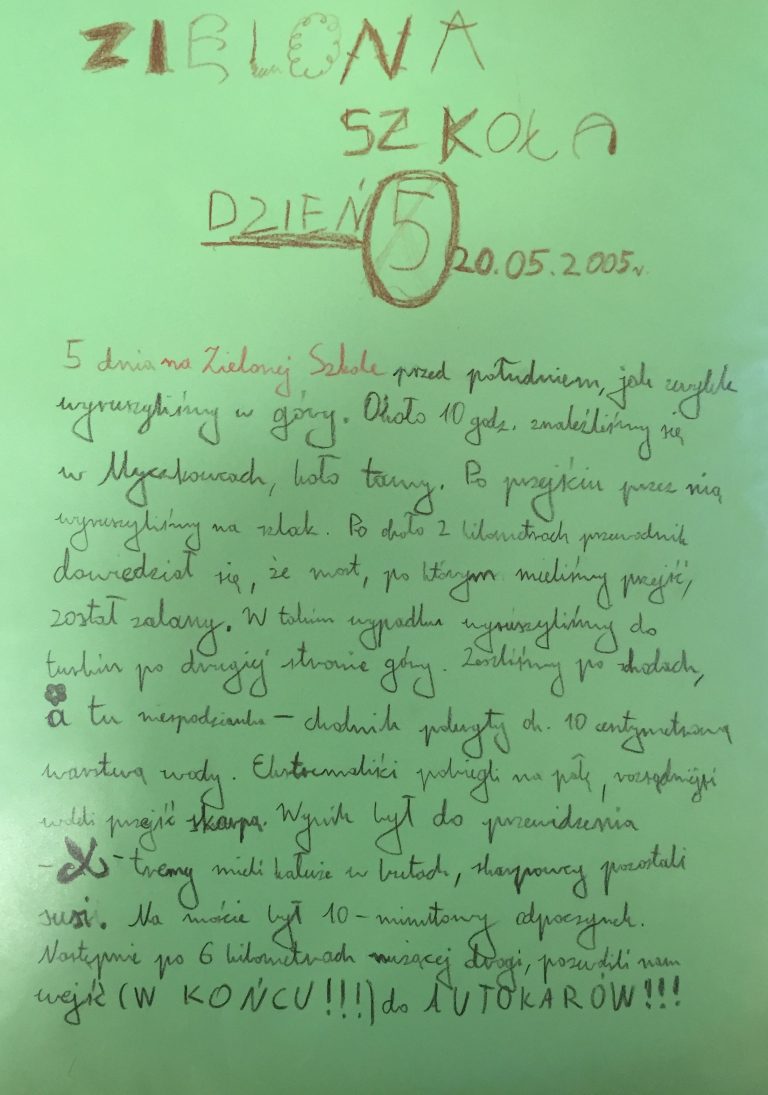 ZIELONA
SZKOŁA
DZIEŃ 5 20.05.2005r.
5 dnia na Zielonej Szkole przed południem, jak zwykle
wyruszyliśmy w góry. Około 10 godz. znaleźliśmy się
w Myczkowcach, koło tamy. Po przejściu przez nią
wyruszyliśmy na szlak. Po około 2 kilometrach przewodnik
dowiedział się, że most, po którym mieliśmy przejść,
został zalany. W takim wypadku wyruszyliśmy do
turbin po drugiej stronie góry. Zeszliśmy po schodach,
a tu niespodzianka – chodnik pokryty ok. 10 centymetrową
warstwą wody. Ekstremaliści pobiegli na pałę, rozsądniejsi
woleli przejść skarpą. Wynik był do przewidzenia
– X-tremy mieli kałuże w butach, skarpowcy pozostali
susi. Na moście był 10-minutowy odpoczynek.
Następnie po 6 kilometrach nużącej drogi, pozwolili nam
wejść (W KOŃCU!!!) do AUTOKARÓW!!!